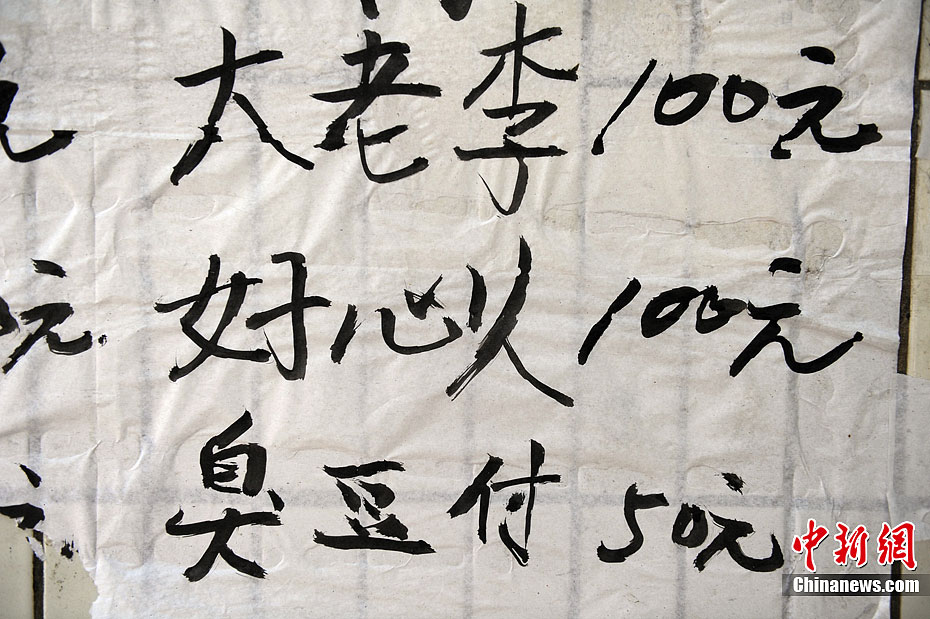 大老李 100元
好心人 100元
元
臭豆付 50元
元
中新網
Chinanews.com